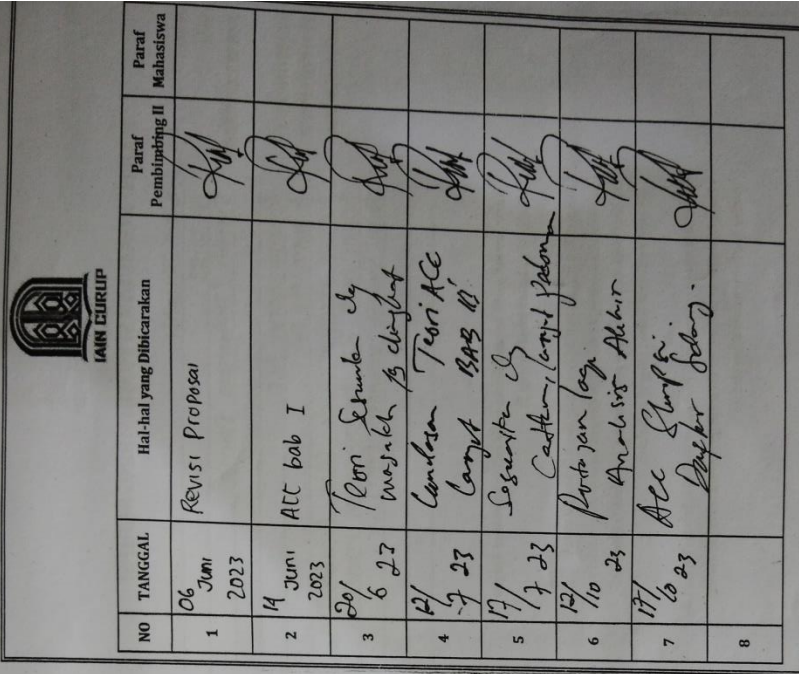 IAIN CURUP
NO TANGGAL Hal-hal yang Dibicarakan Paraf Pembimbing II Paraf Mahasiswa
1 06 Juni 2023 Revisi Proposal
2 14 Juni 2023 Acc bab I
3 20/6 23 Teori Sesuaikan dg
masalah yg diangkat
4 12/7 23 Landasan Teori ACC
Lanjut BAB III
5 17/7 23 Sesuaikan dg
Catatan, lanjut
6 12/10 23 lagi
Analisis Akhir
7 17/10 23 Acc Skripsi.
Daftar Sidang.
8